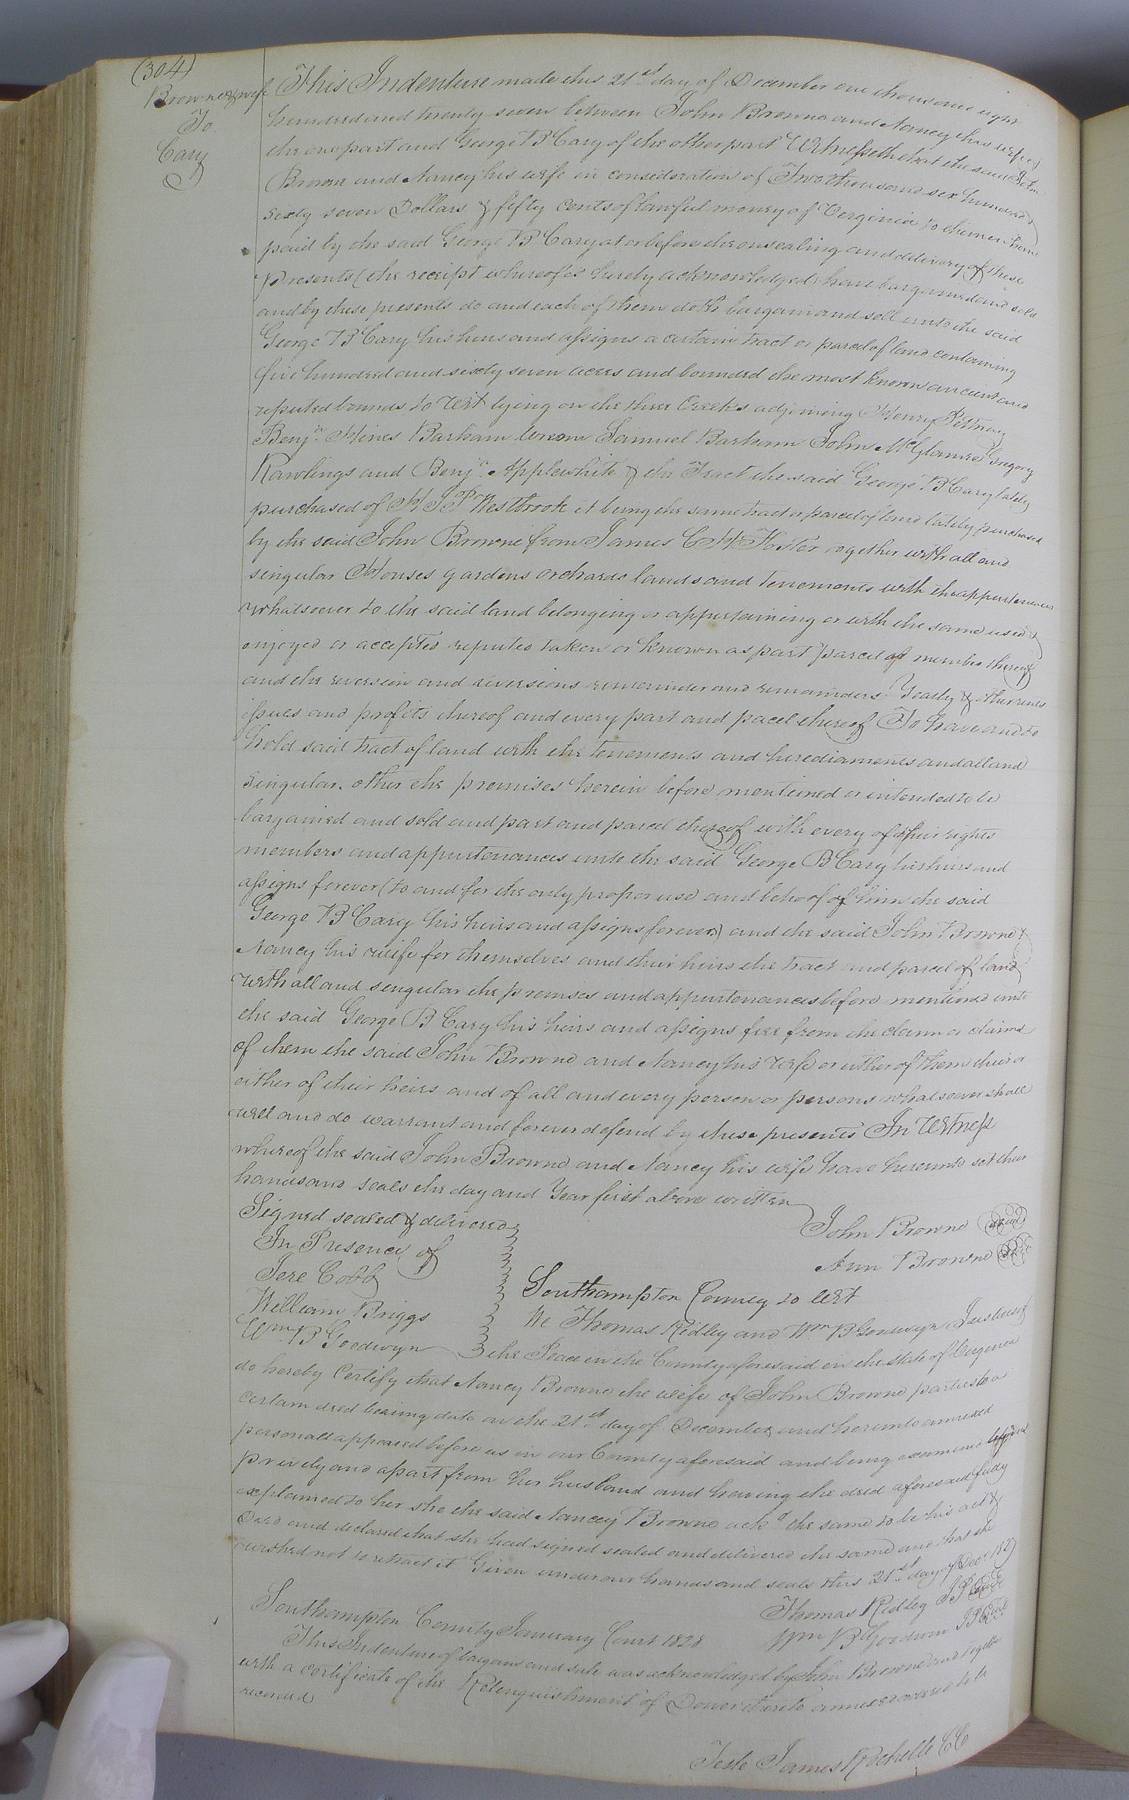 (304)
Browne & wife
To
Cary
This Indenture made this 21st day of December one thousand eight
hundred and twenty seven between John Browne and Nancy his wife of
the one part and George B Cary of the other part Witnesseth that the said John
Brown and Nancy his wife in consideration of Two thousand six hundred &
sixty seven Dollars & fifty cents of lawful money of Virginia to them in hand
paid by the said George B Cary at or before the ensealing and delivery of these
presents (the receipt whereof is hereby acknowledged) have bargained and sold
and by these presents do and each of them doth bargain and sell unto the said
George B Cary his heirs and assigns a certain tract or parcel of land containing
five hundred and sixty seven acres and bounded the most known ancient and
reputed bounds to Wit lying on the three Creeks adjoining Henry
Benjn. Hines Barham Samuel Barham John McGlamre Gregory
Rawlings and Benjn. Applewhite & the Tract the said George B Cary lately
purchased of H J P Westbrook it being the same tract or parcel of land lately purchased
by the said John Browne from James C H Foster together with all and
singular Houses gardens orchards lands and tenements with the appurtenances
whatsoever to the said land belonging or appertaining or with the same used &
enjoyed or accepted reputed taken or known as part parcel of member thereof
and the reversion and reversions remainder and remainders Yearly & other rents
issues and profits thereof and every part and pacel thereof To have and to
hold said tract of land with the tenements and herediaments and all and
singular other the premises herein before mentioned or intended to be
bargained and sold and part and parcel thereof with every of their rights
members and appurtenances unto the said George B Cary his heirs and
assigns forever (to and for the only proper use and behoof of him the said
George B Cary his heirs and assigns forever) and the said John Browne &
Nancy his wife for themselves and their heirs the tract and parcel of land
with all and singular the premises and appurtenances before mentioned unto
the said George B Cary his heirs and assigns free from the claim or claims
of them the said John Browne and Nancy his wife or either of them their or
either of their heirs and of all and every person or persons whatsoever shall
will and do warrant and forever defend by these presents In Witness
whereof the said John Browne and Nancy his wife have hereunto set their
hands and seals the day and Year first above written
Signed sealed & delivered
John Browne seal
In Presence of
Ann Browne seal
Jere Cobb
Southampton County to Wit
William Briggs
We Thomas Ridley and Wm B Goodwyn Justices of
Wm B Goodwyn
the Peace in the County aforesaid in the state of Virginia
do hereby Certify that Nancy Browne the wife of John Browne parties to a
certain deed bearing date on the 21st day of December and hereunto annexed
personall appeared before us in our County aforesaid and being examined by us
privily and apart from her husband and having the deed aforesaid fully
explained to her she the said Nancy Browne ackd the same to be his act &
Deed and declared that she had signed sealed and delivered the same and that she
wished not to retract it Given under our hands and seals this 21st day of Decr 1827
Thomas Ridley JP seal
Wm B Goodwin JP seal
Southampton County January Court 1828
This Indenture of bargain and sale was acknowledged by John Browne and together
with a certificate of the Relinquishment of Dower thereto annexed ordered to be
recorded
Teste James Rochelle CC